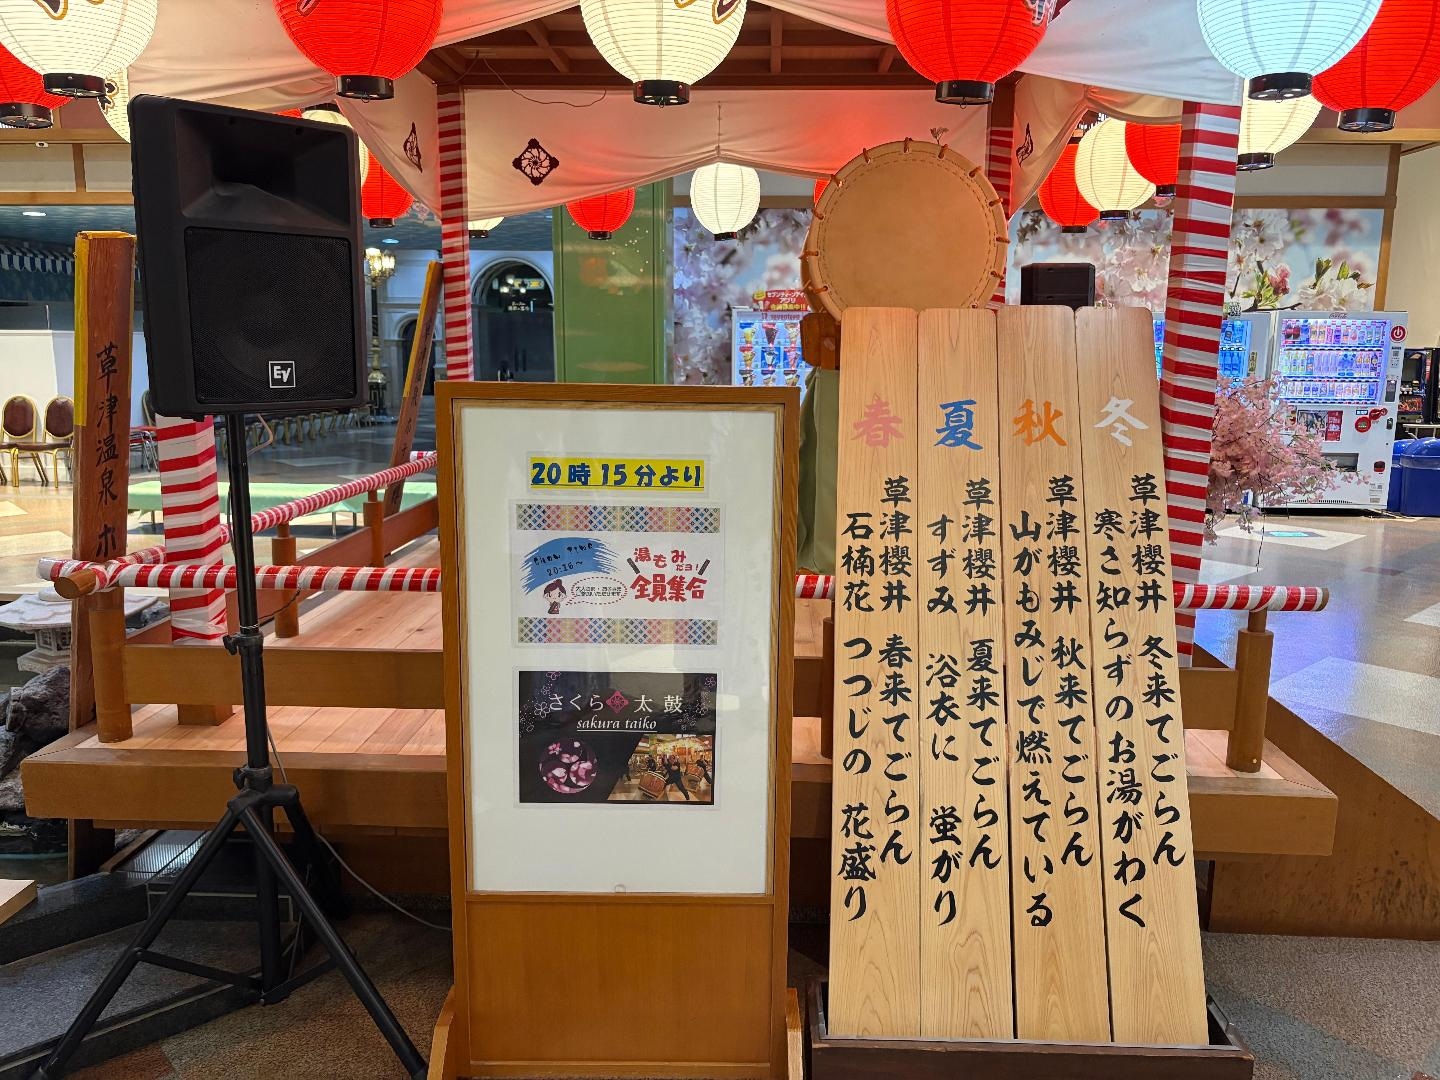 草津温泉 ホ
EV
20時15分より
20:15~
湯もみ
だヨ!
全員集合
さくら 太鼓
sakura taiko
春
草津櫻井 春来てごらん
石楠花 つつじの 花盛り
夏
草津櫻井 夏来てごらん
すずみ 浴衣に 蛍がり
秋
草津櫻井 秋来てごらん
山がもみじで燃えている
冬
草津櫻井 冬来てごらん
寒さ知らずのお湯がわく